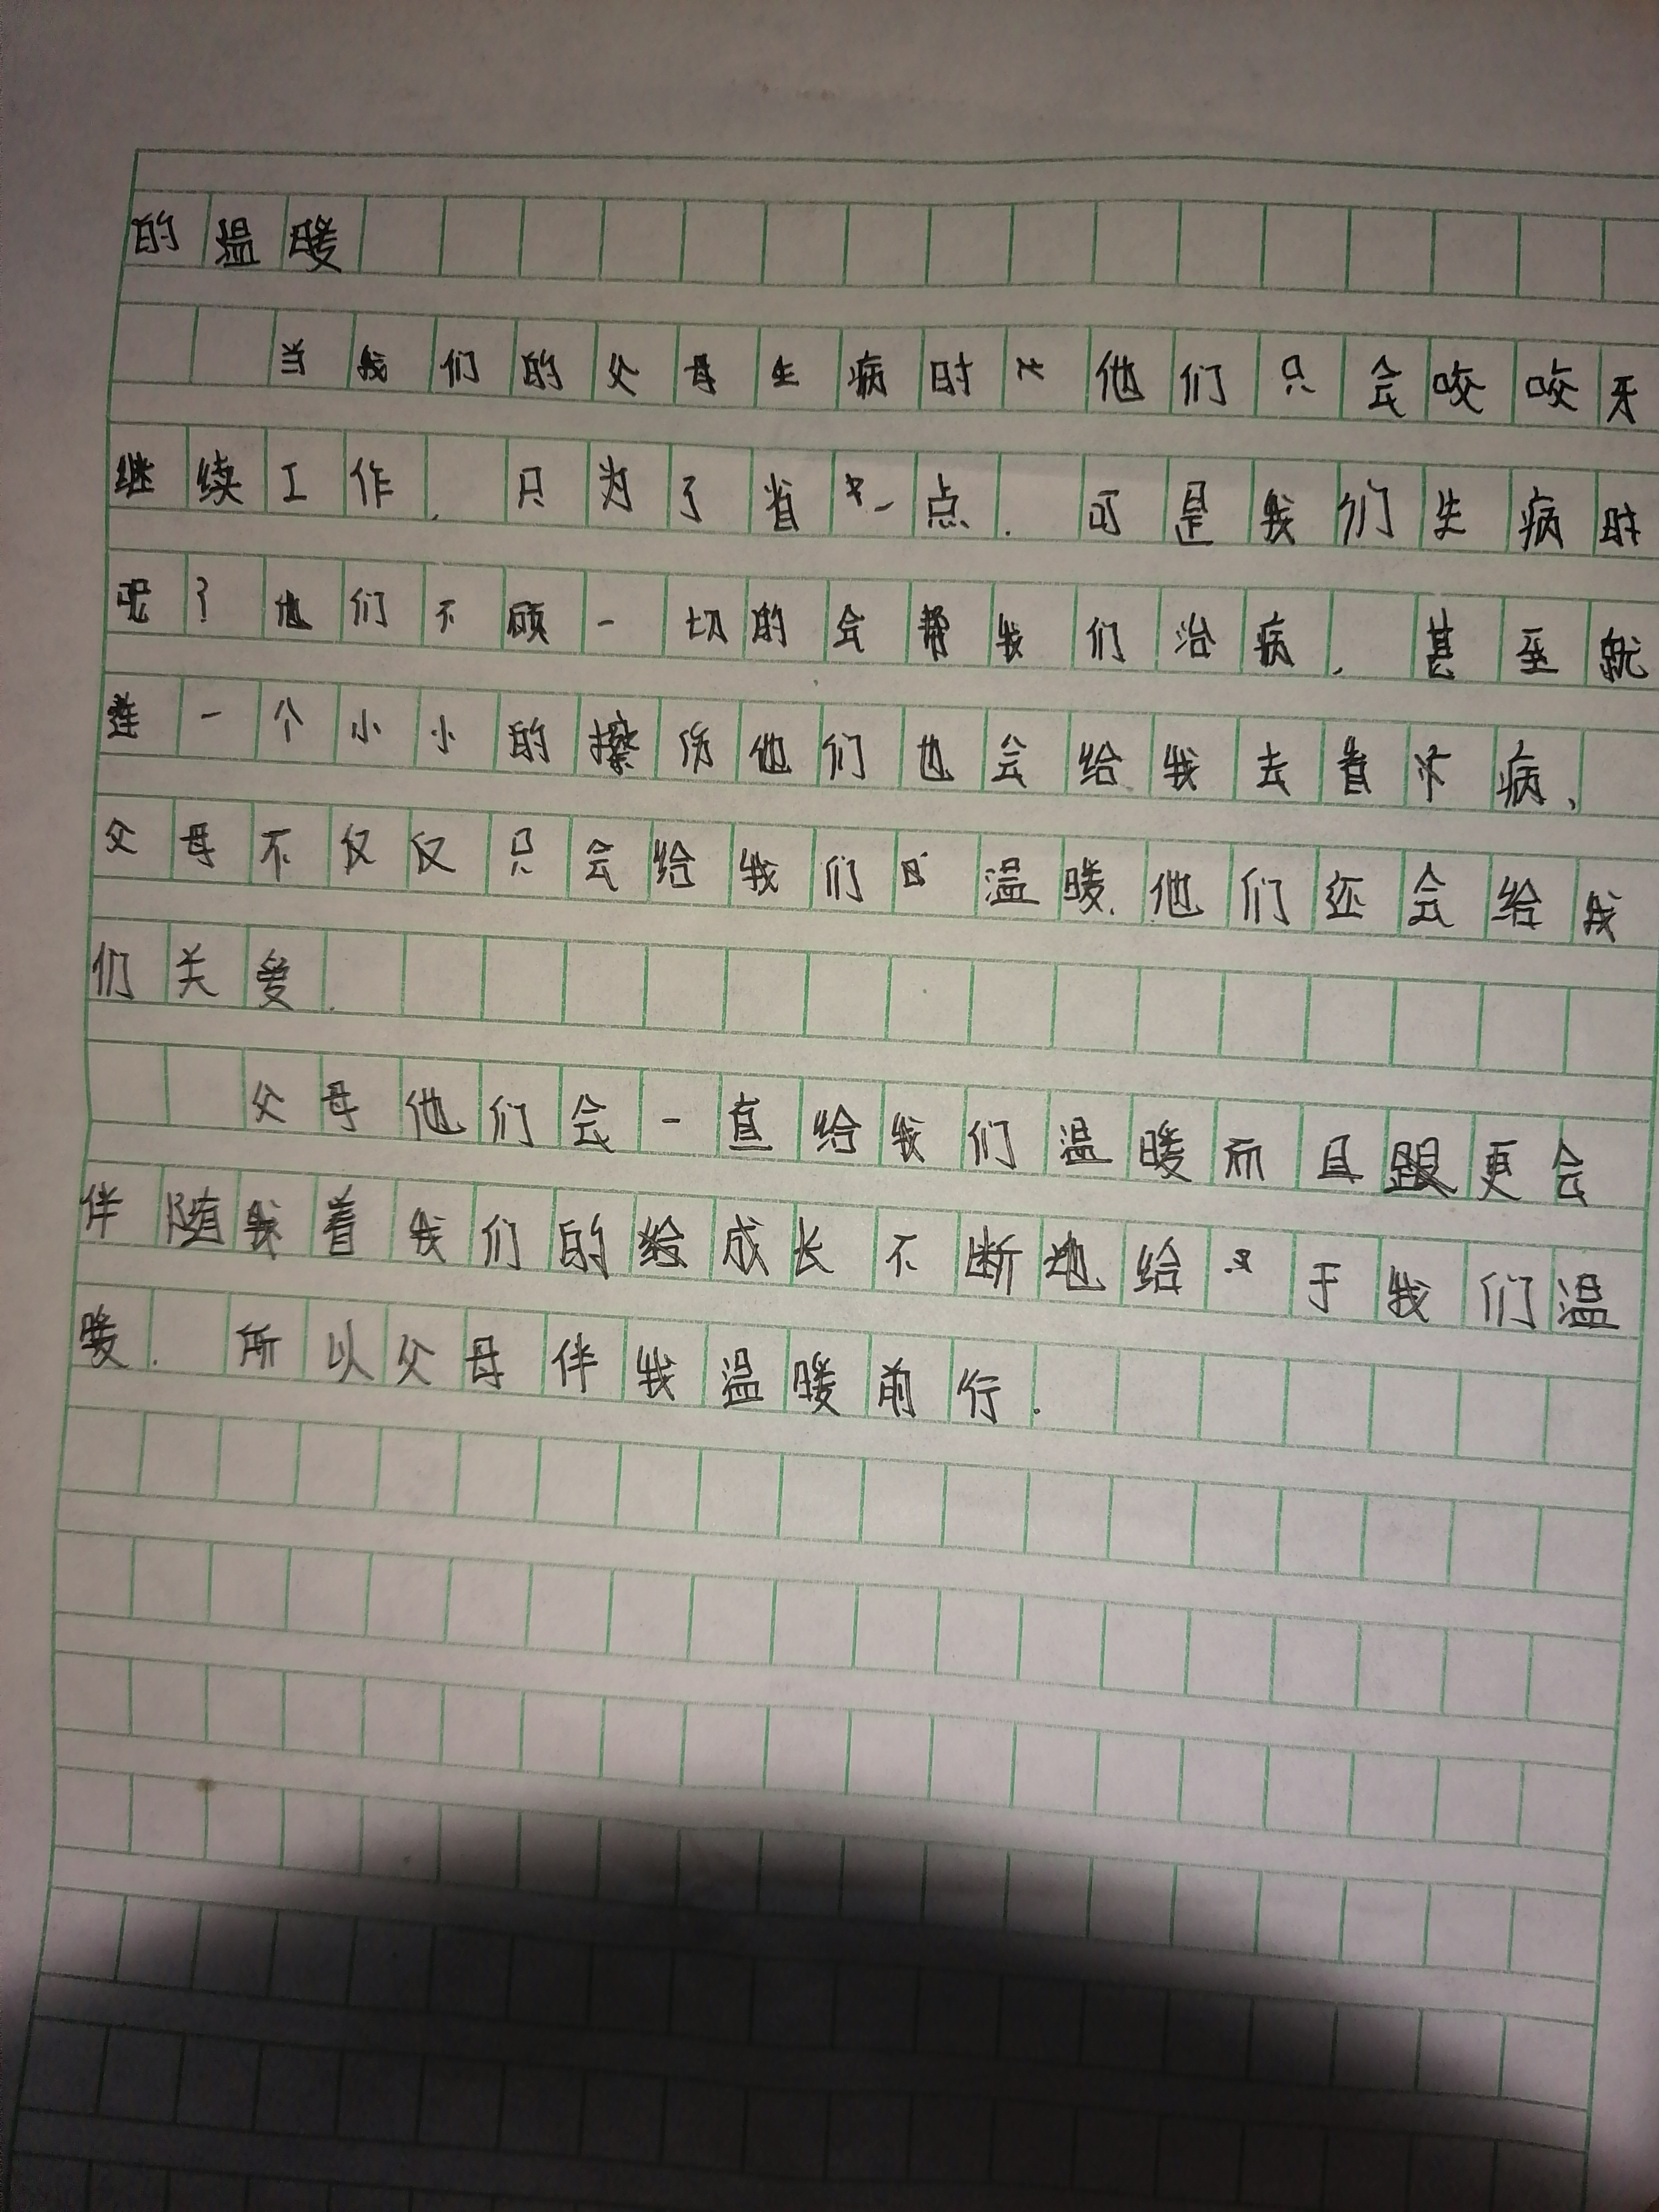 的温暖
当我们的父母生病时他们只会咬咬牙
继续工作.只为了省一点.可是我们生病时
呢?他们不顾一切的会帮我们治病.甚至就
连一个小小的擦伤他们也会给我去看病、
父母不仅仅只会给我们温暖.他们还会给我
们关爱.
父母他们会一直给我们温暖而且更会
伴随着我们的成长不断地给于我们温
暖.所以父母伴我温暖前行.